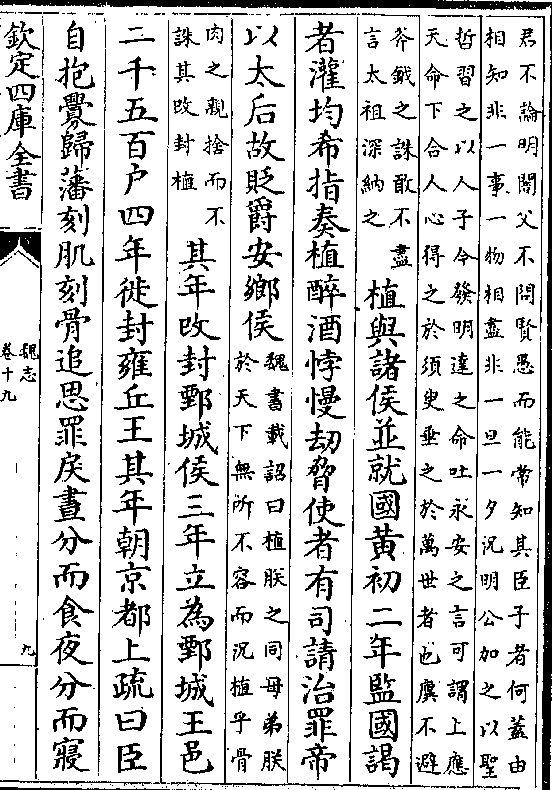 君不論明闇父不問賢愚而能常知其臣子者何蓋由
相知非一事一物相盡非一旦一夕況明公加之以聖
哲習之以人子今發明達之命吐永安之言可謂上應
天命下合人心得之於須臾垂之於萬世者也廙不避
斧鉞之誅敢不盡
言太祖深納之
植與諸侯並就國黃初二年監國謁
者灌均希指奏植醉酒悖慢劫脅使者有司請治罪帝
以太后故貶爵安鄉侯
魏書載詔曰植朕之同母弟朕
於天下無所不容而況植乎骨
肉之親捨而不
誅其改封植
其年改封鄄城侯三年立為鄄城王邑
二千五百户四年徙封雍丘王其年朝京都上疏曰臣
自抱釁歸藩刻肌刻骨追思罪戾晝分而食夜分而寢
欽定四庫全書
魏志
卷十九
九